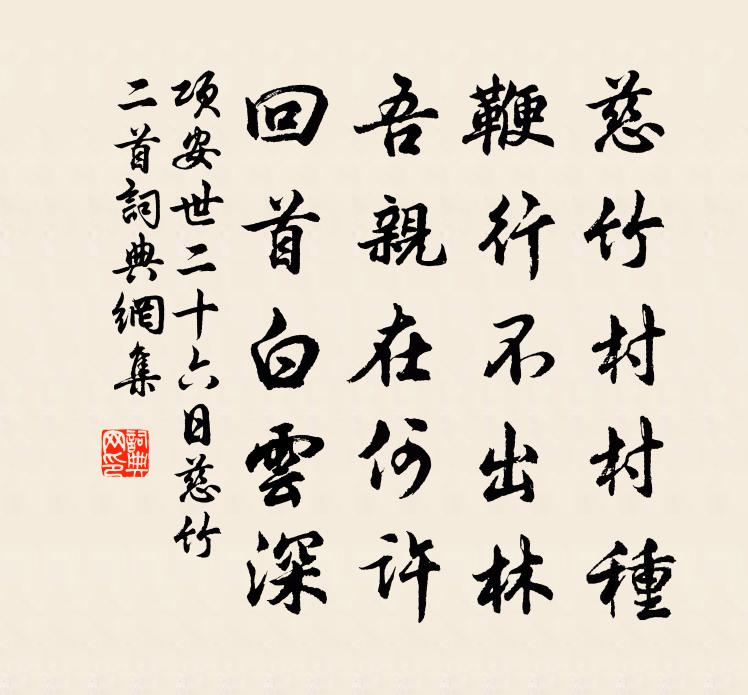 慈竹村村種
鞭行不出林
吾親在何許
回首白雲深
項安世二十六日慈竹
二首詞典網集
詞典網印